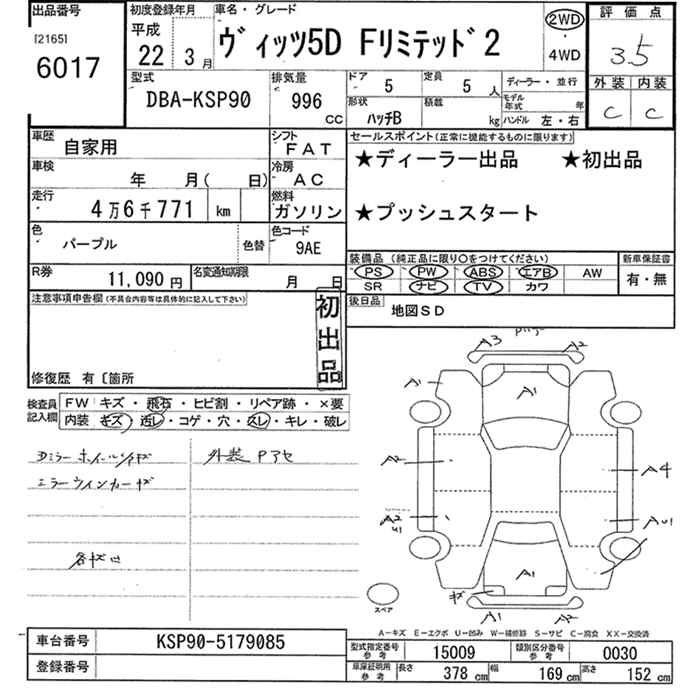 出品番号 初度登録年月 車名・グレード 2WD 評価点
[2165] 平成
6017 22年 3月 ヴィッツ5D Fリミテッド2 4WD 3.5
型式 排気量 ドア 5 定員 5人 ディーラー・並行 外装 内装
DBA-KSP90 996 CC 形状 ハッチB 積載 kg モデル年式 年 ハンドル 左・右 C C
車歴 自家用 シフト FAT セールスポイント(正常に機能するものに限ります)
車検 年 月( 日) 冷房 AC ★ディーラー出品 ★初出品
走行 4万6千771 km 燃料 ガソリン ★プッシュスタート
色 パープル 色替 色コード 9AE
装備品(純正品に限り○をつけてください) 新車保証書
R券 11,090円 名変通知期限 月 日 PS PW ABS エアB AW 有・無
SR ナビ TV カワ
注意事項申告欄(不具合内容等は具体的に記入して下さい) 初出品 後日品 地図SD
修復歴 有〔箇所
検査員記入欄 FW キズ・飛石・ヒビ割・リペア跡・×要
内装 キズ・汚レ・コゲ・穴・スレ・キレ・破レ
外装
A3 A2
A1 A1
A2 A4
A2 U1 AU1
A1
キズ
A1 A2
スペア
A-キズ E-エクボ U-凹み W-補修跡 S-サビ C-腐食 XX-交換済
車台番号 KSP90-5179085 型式指定番号 参考 15009 類別区分番号 参考 0030
登録番号 車庫証明用 参考 長さ 378 cm 幅 169 cm 高さ 152 cm